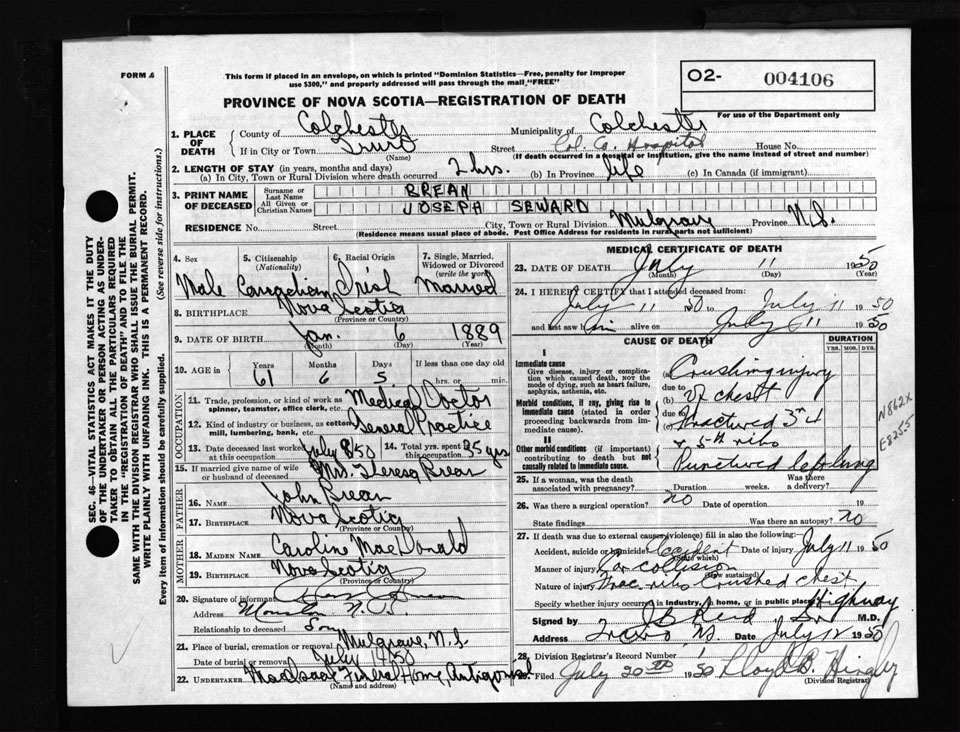 FORM 6
This form if placed in an envelope, on which is printed "Dominion Statistics—Free, penalty for improper
use $300," and properly addressed will pass through the mail "FREE"
O2- 004106
For use of the Department only
PROVINCE OF NOVA SCOTIA—REGISTRATION OF DEATH
1. PLACE OF DEATH { County of Colchester Municipality of Colchester
If in City or Town Truro (Name) Street Col. Co. Hospital House No.
(If death occurred in a hospital or institution, give the name instead of street and number)
2. LENGTH OF STAY (in years, months and days)
(a) In City, Town or Rural Division where death occurred 2 hrs. (b) In Province life (c) In Canada (if immigrant)
3. PRINT NAME OF DECEASED { Surname or Last Name BREAN
All Given or Christian Names JOSEPH SEWARD
RESIDENCE No. Street City, Town or Rural Division Mulgrave Province N.S.
(Residence means usual place of abode. Post Office Address for residents in rural parts not sufficient)
4. Sex Male
5. Citizenship (Nationality) Canadian
6. Racial Origin Irish
7. Single, Married, Widowed or Divorced (write the word) Married
8. BIRTHPLACE Nova Scotia (Province or Country)
9. DATE OF BIRTH Jan. (Month) 6 (Day) 1889 (Year)
10. AGE in { Years 61 Months 6 Days 5 If less than one day old hrs. or min.
OCCUPATION
11. Trade, profession, or kind of work as spinner, teamster, office clerk, etc. Medical Doctor
12. Kind of industry or business, as cotton mill, lumbering, bank, etc. General Practice
13. Date deceased last worked at this occupation July 8/50 14. Total yrs. spent in this occupation 35 yrs
15. If married give name of wife or husband of deceased Mrs. Theresa Brean
FATHER
16. NAME John Brean
17. BIRTHPLACE Nova Scotia (Province or Country)
MOTHER
18. MAIDEN NAME Caroline MacDonald
19. BIRTHPLACE Nova Scotia (Province or Country)
20. Signature of informant
Address N.B.
Relationship to deceased Son
21. Place of burial, cremation or removal Mulgrave, N.S.
Date of burial or removal July 14/50
22. UNDERTAKER MacIsaac Funeral Home, Antigonish
(Name and address)
MEDICAL CERTIFICATE OF DEATH
23. DATE OF DEATH July (Month) 11 (Day) 1950 (Year)
24. I HEREBY CERTIFY that I attended deceased from:
July 11 50 to July 11 1950
and last saw him alive on July 11 1950
CAUSE OF DEATH
DURATION
YRS. MOS. DYS.
I
Immediate cause
Give disease, injury or complication which caused death, NOT the mode of dying, such as heart failure, asphyxia, asthenia, etc.
(a) Crushing injury
due to
Morbid conditions, if any, giving rise to immediate cause (stated in order proceeding backwards from immediate cause).
(b) of chest
due to
(c) Fractured 3rd 4
& 5th ribs
II
Other morbid conditions (if important) contributing to death but not causally related to immediate cause.
Punctured left lung
N862X
E8255
25. If a woman, was the death associated with pregnancy? Duration weeks. Was there a delivery?
26. Was there a surgical operation? no Date of operation 19
State findings Was there an autopsy? no
27. If death was due to external causes (violence) fill in also the following:
Accident, suicide or homicide? accident (State which) Date of injury July 11 1950
Manner of injury Car collision (How sustained)
Nature of injury Frac. ribs crushed chest
Specify whether injury occurred in industry, in home, or in public place Highway
Signed by J B Reid Sr M.D.
Address Truro NS. Date July 12 1950
28. Division Registrar's Record Number
29. Filed July 20th 1950 Lloyd B. Hingley
(Division Registrar)
SEC. 46—VITAL STATISTICS ACT MAKES IT THE DUTY
OF THE UNDERTAKER OR PERSON ACTING AS UNDERTAKER TO OBTAIN ALL THE PARTICULARS REQUIRED
IN THE "REGISTRATION OF DEATH" AND TO FILE THE
SAME WITH THE DIVISION REGISTRAR WHO SHALL ISSUE THE BURIAL PERMIT.
WRITE PLAINLY WITH UNFADING INK. THIS IS A PERMANENT RECORD.
Every item of information should be carefully supplied. (See reverse side for instructions.)